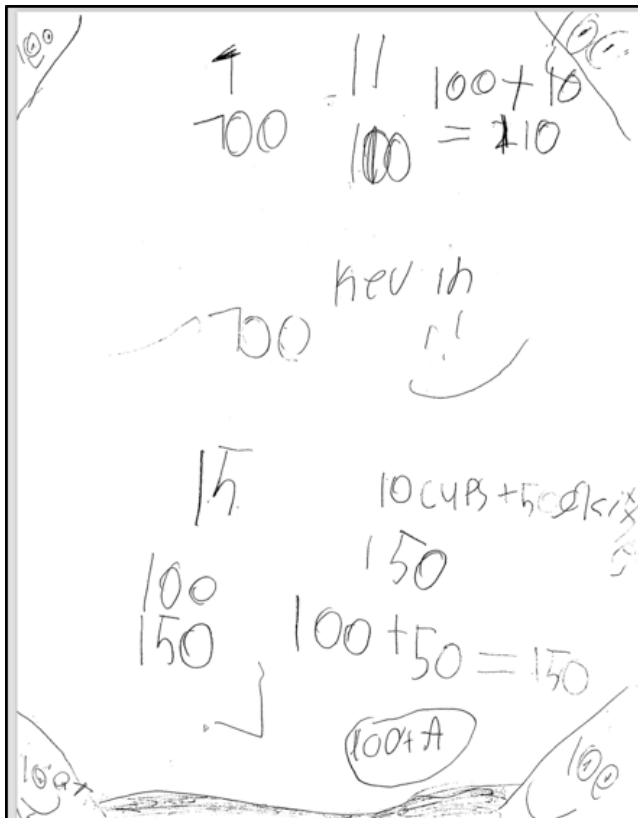 100
700
11
100
100+10
=110
700
kevin
15
10 cups + 50
150
100
150
100+50=150
100+A
100